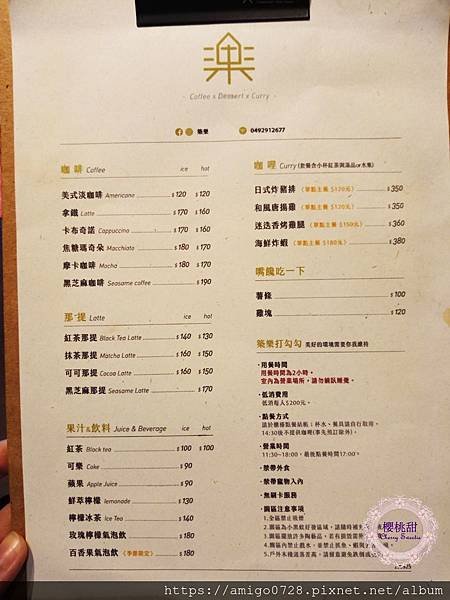 樂
- Coffee x Dessert x Curry -
築樂 0492912677
咖啡 Coffee ice hot
美式淡咖啡 Americano $120 $120
拿鐵 Latte $170 $160
卡布奇諾 Cappuccino $170 $160
焦糖瑪奇朵 Macchiato $180 $170
摩卡咖啡 Mocha $180 $170
黑芝麻咖啡 Seasame coffee $190
那提 Latte ice hot
紅茶那提 Black Tea Latte $140 $130
抹茶那提 Matcha Latte $160 $150
可可那提 Cocoa Latte $160 $150
黑芝麻那提 Seasame Latte $170
果汁&飲料 Juice & Beverage ice hot
紅茶 Black tea $100 $100
可樂 Coke $90
蘋果 Apple Juice $90
鮮萃檸檬 lemonade $130
檸檬冰茶 Ice Tea $140
玫瑰檸檬氣泡飲 $180
百香果氣泡飲 (季節限定) $180
咖哩 Curry (套餐含小杯紅茶與湯品or水果)
日式炸豬排 (單點主餐 $120元) $350
和風唐揚雞 (單點主餐 $120元) $350
迷迭香烤雞腿 (單點主餐 $150元) $360
海鮮炸蝦 (單點主餐 $180元) $380
嘴饞吃一下
薯條 $100
雞塊 $120
築樂打勾勾 美好的環境需要你我維持
·用餐時間
用餐時間為2小時。
室內為營業場所，請勿躺臥睡覺。
·低消費用
低消每人$200元。
·點餐方式
請於櫃檯點餐結帳；杯水、餐具請自行取用。
14:30後不提供咖哩(事先預訂除外)。
·營業時間
11:30~18:00，最後點餐時間17:00。
·禁帶外食
·禁帶寵物入內
·無刷卡服務
·園區注意事項
1.全區禁止吸煙
櫻桃甜
Cherry Sweetie
https://amigo0728.pixnet.net/album